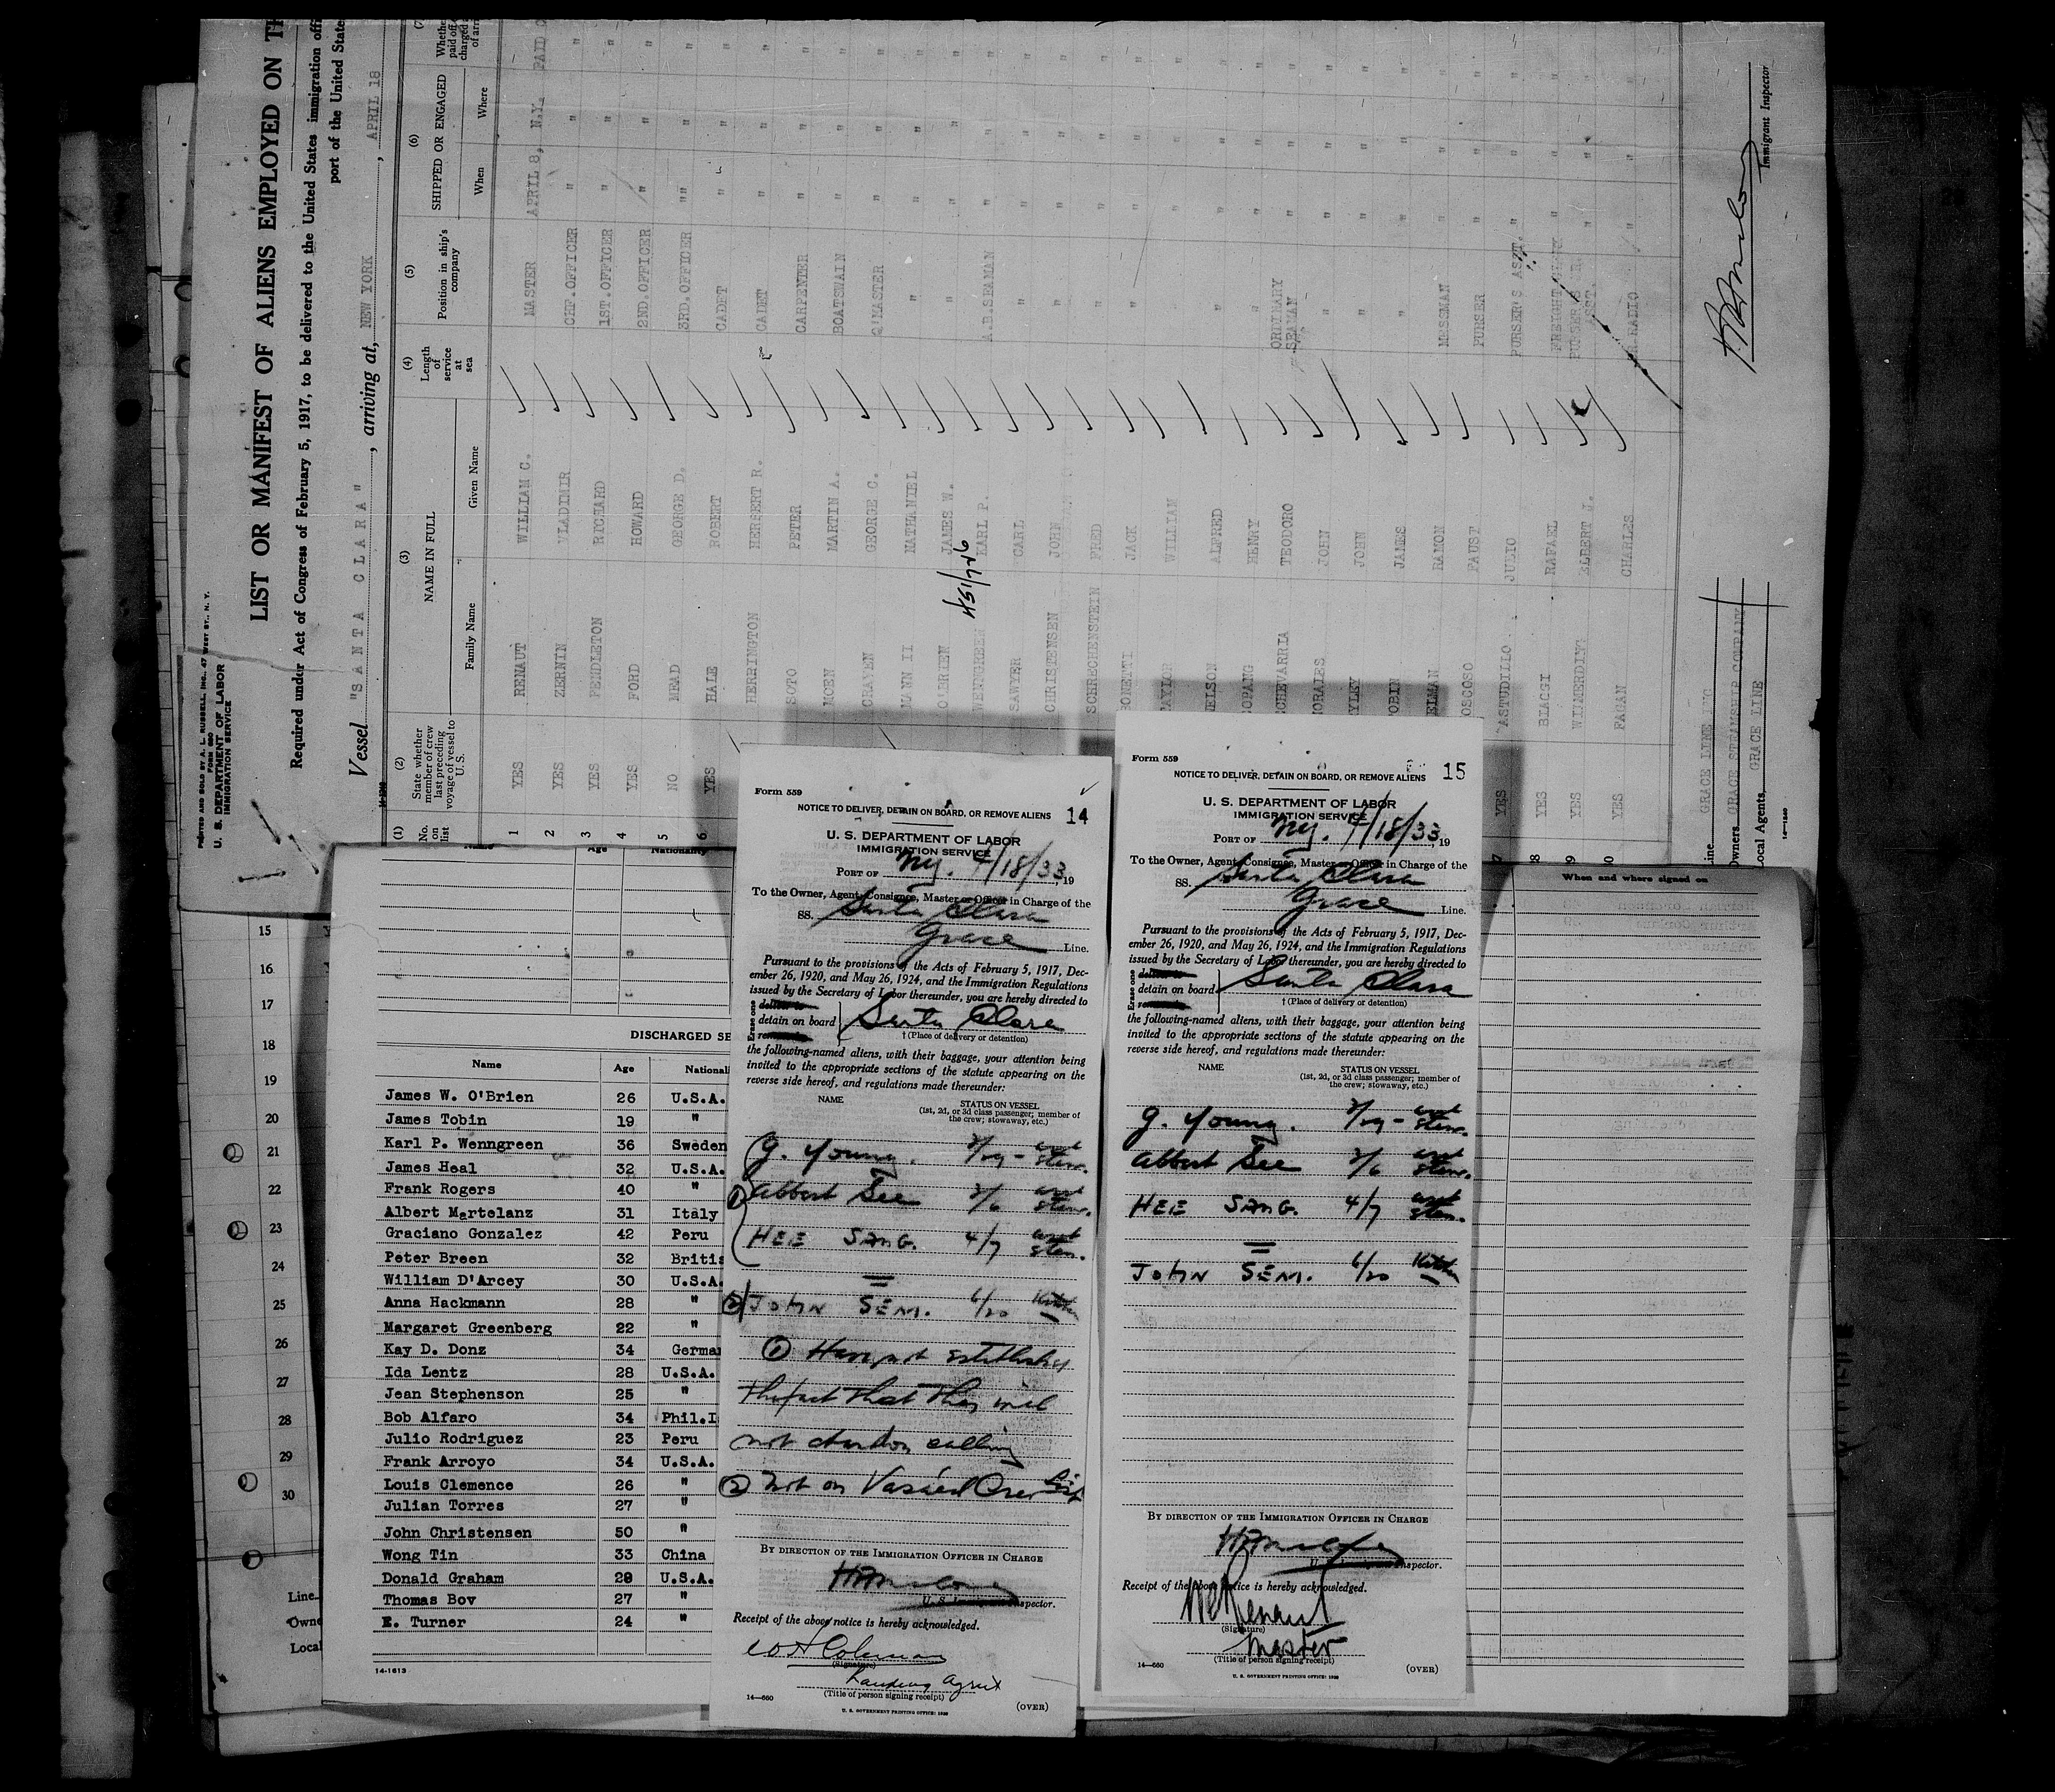 PRINTED AND SOLD BY A. L. RUSSELL, INC., 47 WEST ST., N. Y.
FORM 680
U. S. DEPARTMENT OF LABOR
IMMIGRATION SERVICE
LIST OR MANIFEST OF ALIENS EMPLOYED ON
Required under Act of Congress of February 5, 1917, to be delivered to the United States immigration
port of the United
Vessel "SANTA CLARA", arriving at, NEW YORK, APRIL 18
(1) (2) (3) (4) (5) (6)
No. on list
State whether member of crew last preceding voyage of vessel to U.S.
NAME IN FULL
Family Name Given Name
Length of service at sea
Position in ship's company
SHIPPED OR ENGAGED
When Where
1 YES RENAUT WILLIAM C. MASTER APRIL 8, N.Y. PAID
2 YES ZERNIN VLADIMIR CHF.OFFICER " " "
3 YES PENDLETON RICHARD 1ST.OFFICER " " "
4 YES FORD HOWARD 2ND.OFFICER " " "
5 NO MEAD GEORGE D. 3RD.OFFICER " " "
6 YES HALE ROBERT CADET " " "
HERRINGTON HERBERT R. CADET " " "
SOTO PETER CARPENTER " " "
MOEN MARTIN A. BOATSWAIN " " "
CRAVEN GEORGE C. Q'MASTER " " "
MANN II NATHANIEL " " " "
O'BRIEN JAMES W. " " " "
451/726
WENNGREEN KARL P. A.B.SEAMAN " " "
SAWYER CARL " " " "
CHRISTENSEN JOHN " " " "
SCHRECHENSTEIN FRED " " " "
BONETTI JACK " " " "
AYLOR WILLIAM " " "
ELSON ALFRED " " " "
HENRY " " " "
CHEVARRIA TEODORO ORDINARY SEAMAN " " "
ORALES JOHN " " " "
YLEY JOHN " " " "
OBIN JAMES " " " "
ELMAN RAMON MESSMAN " " "
OSCOSO FAUST PURSER " " "
7 YES ASTUDILLO JULIO PURSER'S ASST. " " "
8 YES BIAGGI RAFAEL FREIGHT " "
9 YES WILMERDING ELBERT J. PURSER'S ASST. " " "
0 YES FAGAN CHARLES " " "
Line GRACE LINE INC
Owners GRACE STEAMSHIP COMPANY
Local Agents, GRACE LINE
14-1240
Immigrant Inspector
15
16
17
18
19
20
21
22
23
24
25
26
27
28
29
30
Line
Owne
Local
Name Age Nationality
DISCHARGED SE
Name Age Nationali
James W. O'Brien 26 U.S.A.
James Tobin 19 "
Karl P. Wenngreen 36 Sweden
James Heal 32 U.S.A.
Frank Rogers 40 "
Albert Martelanz 31 Italy
Graciano Gonzalez 42 Peru
Peter Breen 32 Britis
William D'Arcey 30 U.S.A.
Anna Hackmann 28 "
Margaret Greenberg 22 "
Kay D. Donz 34 German
Ida Lentz 28 U.S.A.
Jean Stephenson 25 "
Bob Alfaro 34 Phil.I
Julio Rodriguez 23 Peru
Frank Arroyo 34 U.S.A.
Louis Clemence 26 "
Julian Torres 27 "
John Christensen 50 "
Wong Tin 33 China
Donald Graham 29 U.S.A.
Thomas Bov 27 "
E. Turner 24 "
14-1613
Form 559
NOTICE TO DELIVER, DETAIN ON BOARD, OR REMOVE ALIENS 14
U. S. DEPARTMENT OF LABOR
IMMIGRATION SERVICE
PORT OF Ny. 4/18/33, 19
To the Owner, Agent, Consignee, Master or Officer in Charge of the
SS. Santa Clara
Grace Line.
Pursuant to the provisions of the Acts of February 5, 1917, Dec-
ember 26, 1920, and May 26, 1924, and the Immigration Regulations
issued by the Secretary of Labor thereunder, you are hereby directed to
Erase one
deliver to
detain on board Santa Clara
remove to
† (Place of delivery or detention)
the following-named aliens, with their baggage, your attention being
invited to the appropriate sections of the statute appearing on the
reverse side hereof, and regulations made thereunder:
NAME STATUS ON VESSEL
(1st, 2d, or 3d class passenger; member of
the crew; stowaway, etc.)
G. Young. 3/29 -
① Albert See 3/6
HEE SANG. 4/7
② JOHN SEM. 6/20 Kitchen
① Have not established
the fact that they will
not abandon calling
② Not on Vasied Crew List
BY DIRECTION OF THE IMMIGRATION OFFICER IN CHARGE
Inspector.
Receipt of the above notice is hereby acknowledged.
W H Coleman
(Signature)
Landing Agent
(Title of person signing receipt)
14—660
(OVER)
U. S. GOVERNMENT PRINTING OFFICE: 1930
Form 559
NOTICE TO DELIVER, DETAIN ON BOARD, OR REMOVE ALIENS 15
U. S. DEPARTMENT OF LABOR
IMMIGRATION SERVICE
PORT OF Ny. 4/18/33, 19
To the Owner, Agent, Consignee, Master or Officer in Charge of the
SS. Santa Clara
Grace Line.
Pursuant to the provisions of the Acts of February 5, 1917, Dec-
ember 26, 1920, and May 26, 1924, and the Immigration Regulations
issued by the Secretary of Labor thereunder, you are hereby directed to
Erase one
deliver to
detain on board Santa Clara
† (Place of delivery or detention)
the following-named aliens, with their baggage, your attention being
invited to the appropriate sections of the statute appearing on the
reverse side hereof, and regulations made thereunder:
NAME STATUS ON VESSEL
(1st, 2d, or 3d class passenger; member of
the crew; stowaway, etc.)
G. Young. 3/29 -
Albert See 3/6
HEE SANG. 4/7
JOHN SEM. 6/20 Kitchen
BY DIRECTION OF THE IMMIGRATION OFFICER IN CHARGE
Inspector.
Receipt of the above notice is hereby acknowledged.
WC Renaut
(Signature)
Master
(Title of person signing receipt)
14—660
(OVER)
U. S. GOVERNMENT PRINTING OFFICE: 1930
When and where signed on